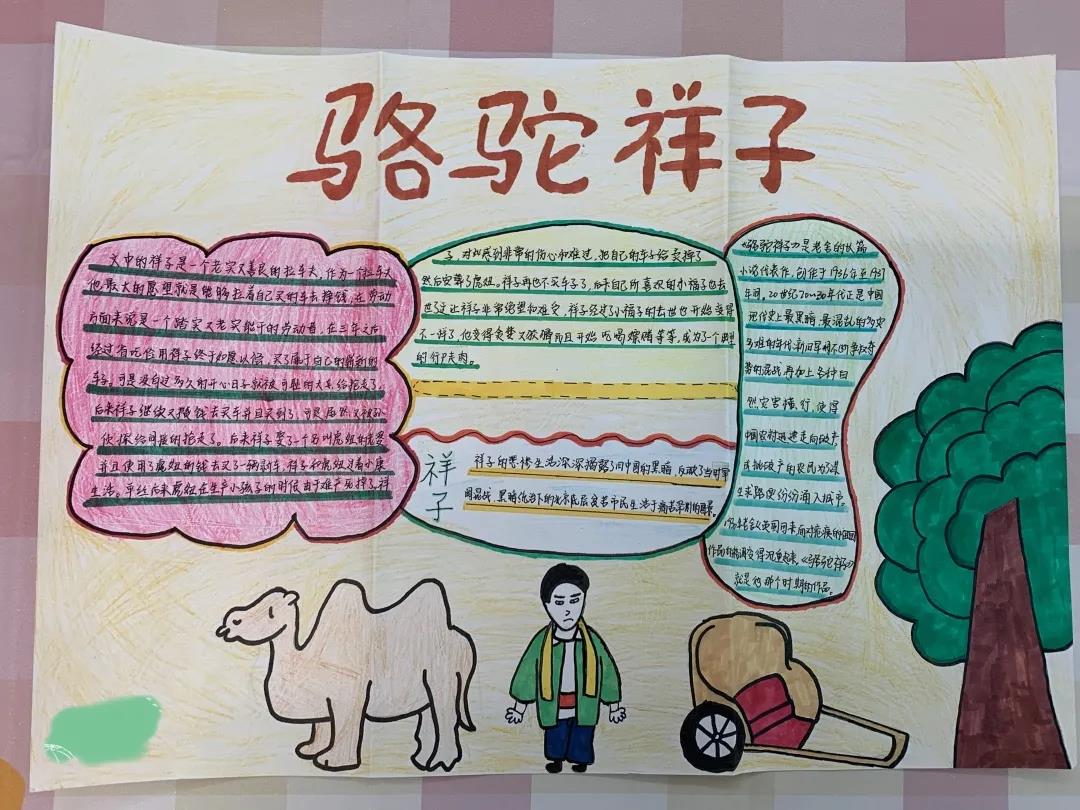 骆驼祥子
文中的祥子是一个老实又善良的拉车夫，作为一个车夫
他最大的愿望就是能够拉着自己买的车去挣钱，在劳动
方面来说是一个踏实又老实能干的劳动者，在三年之后
经过省吃俭用祥子终于如愿以偿，买了属于自己的崭新的
车子，可是没有过多久的开心日子就被可耻的大兵给抢走了，
后来祥子继续又挣钱去买车并且买到了，可是居然又被孙
侦探给间接的抢走了。后来祥子娶了个名叫虎妞的老婆
并且使用了虎妞的钱去买了一辆新车，祥子和虎妞过着小康
生活。可惜后来虎妞在生产小孩子的时候由于难产死掉了，祥
子，对此感到非常的伤心和难过，把自己的车子给卖掉了
然后安葬了虎妞。祥子再也不买车子了，后来自己所喜欢的小福子也去
世了这让祥子非常绝望和难受，祥子经过小福子的去世也开始变得
不一样了，他变得贪婪又破癞而且开始吃喝嫖赌等等，成为了一个典型
的行尸走肉。
祥子
祥子的悲惨生活深深揭露了旧中国的黑暗，反映了当时军
阀混战、黑暗统治下的北京底层贫苦市民生活于痛苦深渊的图景。
《骆驼祥子》是老舍的长篇
小说代表作，创作于1936年至1937
年间。20世纪20~30年代正是中国
现代史上最黑暗、最混乱的多灾
多难的年代，新旧军阀不断争权夺
势的混战，再加上各种自
然灾害横行，使得
中国农村迅速走向破产，
大批破产的农民为了谋
生求路便纷纷涌入城市。
1930年老舍从英国回来面对疮痍的祖国
作品的格调变得沉重起来，《骆驼祥子》
就是他那个时期的作品。